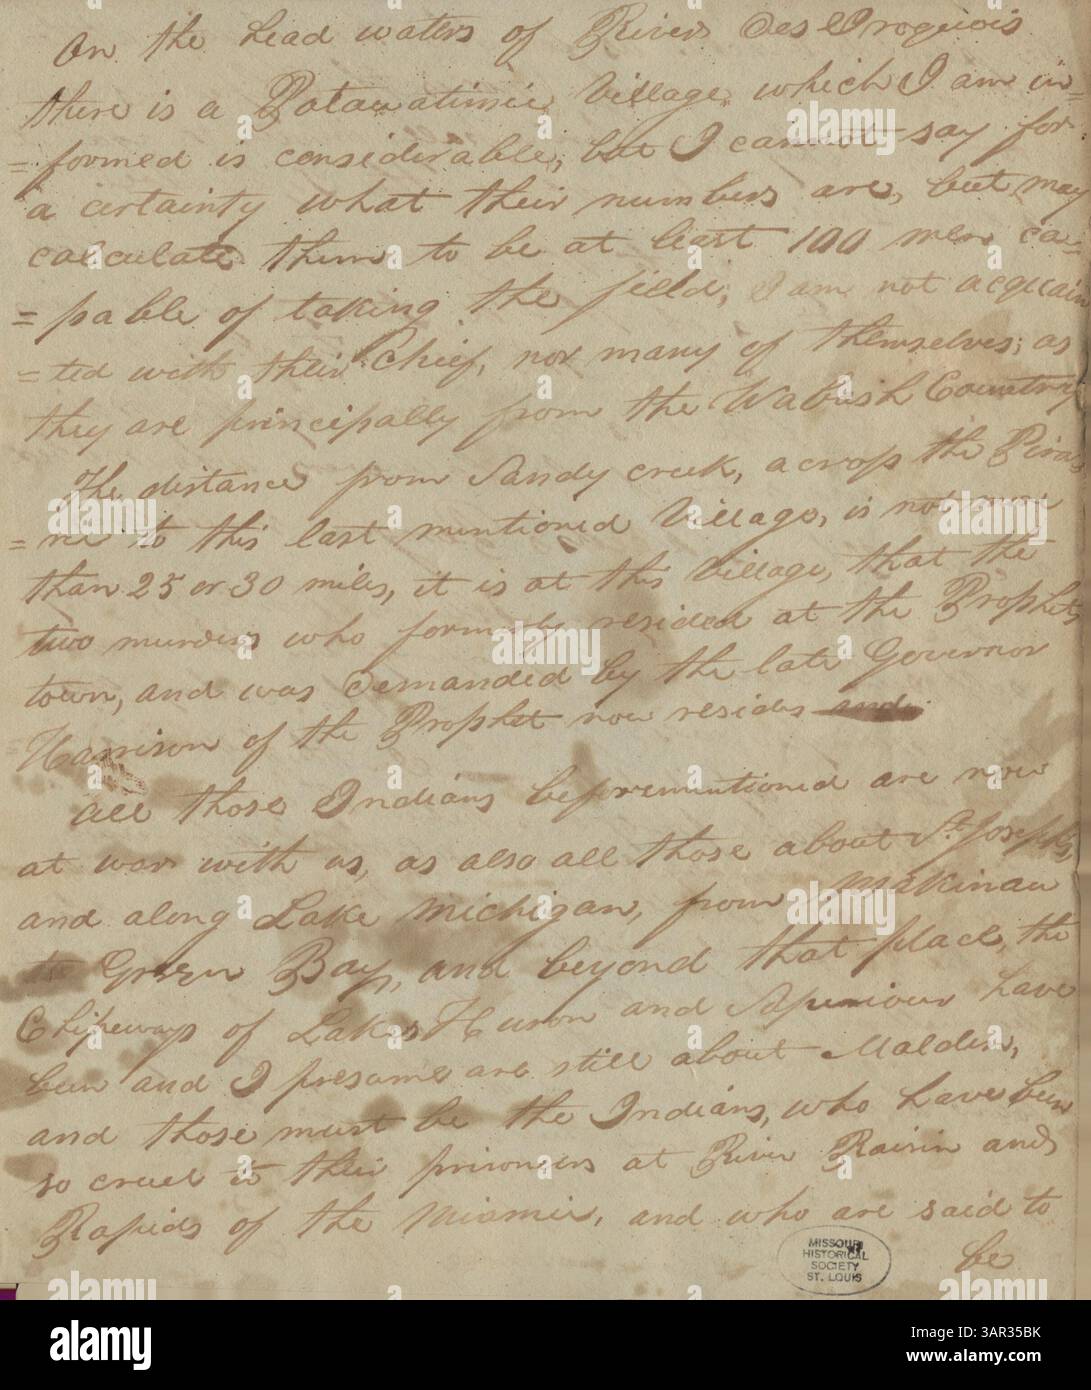 On the head waters of River Des Iroquois
there is a Potawatimie Village which I am in=
=formed is considerable, but I cannot say for
a certainty what their numbers are, but may
calculate them to be at least 100 men ca=
=pable of taking the field; I am not acquain
=ted with their Chief, nor many of themselves; as
they are principally from the Wabash Country
The distance from Sandy creek, across the Pirai
=rie to this last mentioned Village, is not more
than 25 or 30 miles, it is at this Village, that the
two murders who formerly resided at the Prophets
town, and was demanded by the late Governor
Harrison of the Prophet now resides
All those Indians beforementioned are now
at war with us, as also all those about St. Josephs,
and along Lake Michigan, from Makinau
to Green Bay, and beyond that place, the
Chipeways of Lakes Huron and Superiour have
been and I presume are still about Malden,
and those must be the Indians, who have been
so cruel to their prisoners at River Raisin and
Rapids of the Miamie, and who are said to
be
MISSOURI
HISTORICAL
SOCIETY
ST. LOUIS
alamy
Image ID: 3AR35BK
www.alamy.com